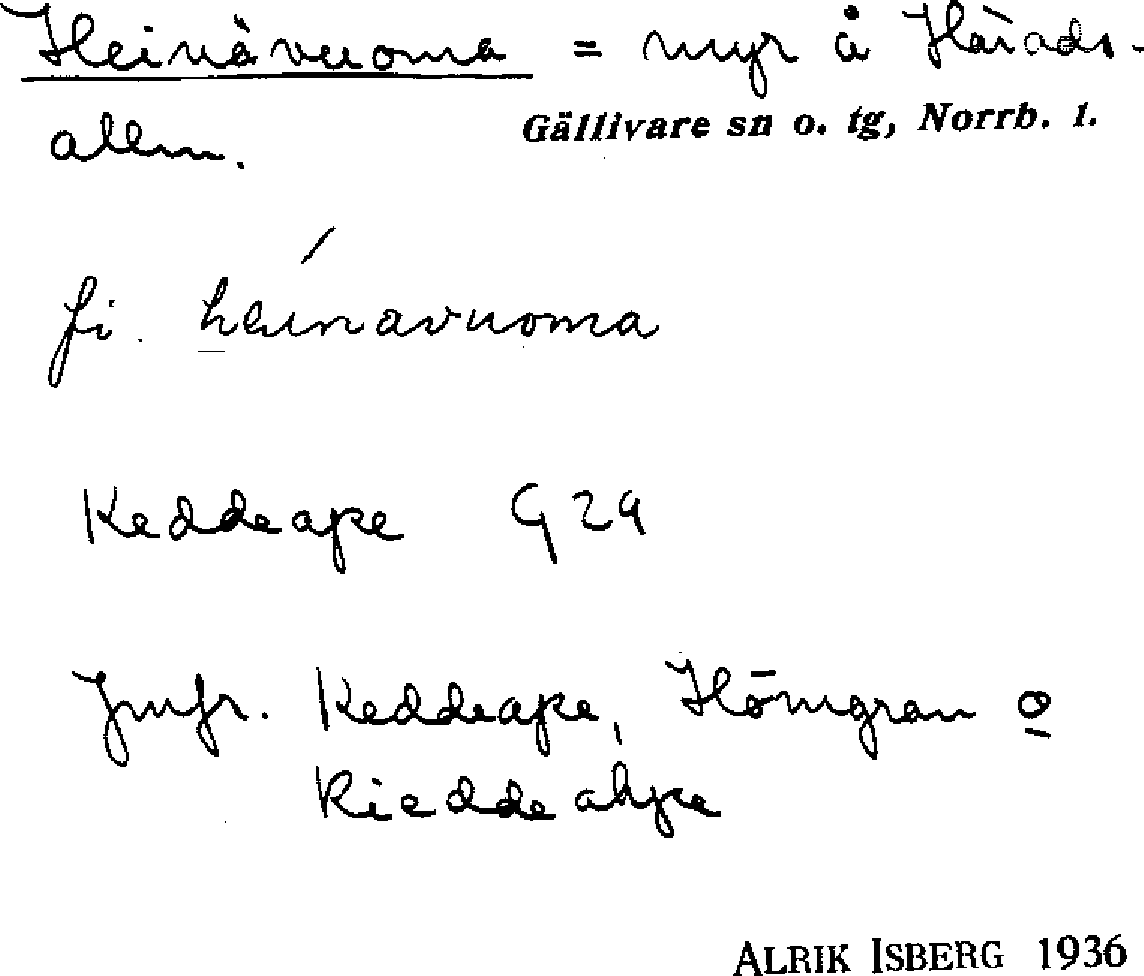 Heinävuoma = myr å Härads-
allm. Gällivare sn o. tg, Norrb. l.
fi. heinavuoma
Keddeape G 29
Jmfr. Keddeape, Hömyran o
Kieddeahpe
ALRIK ISBERG 1936